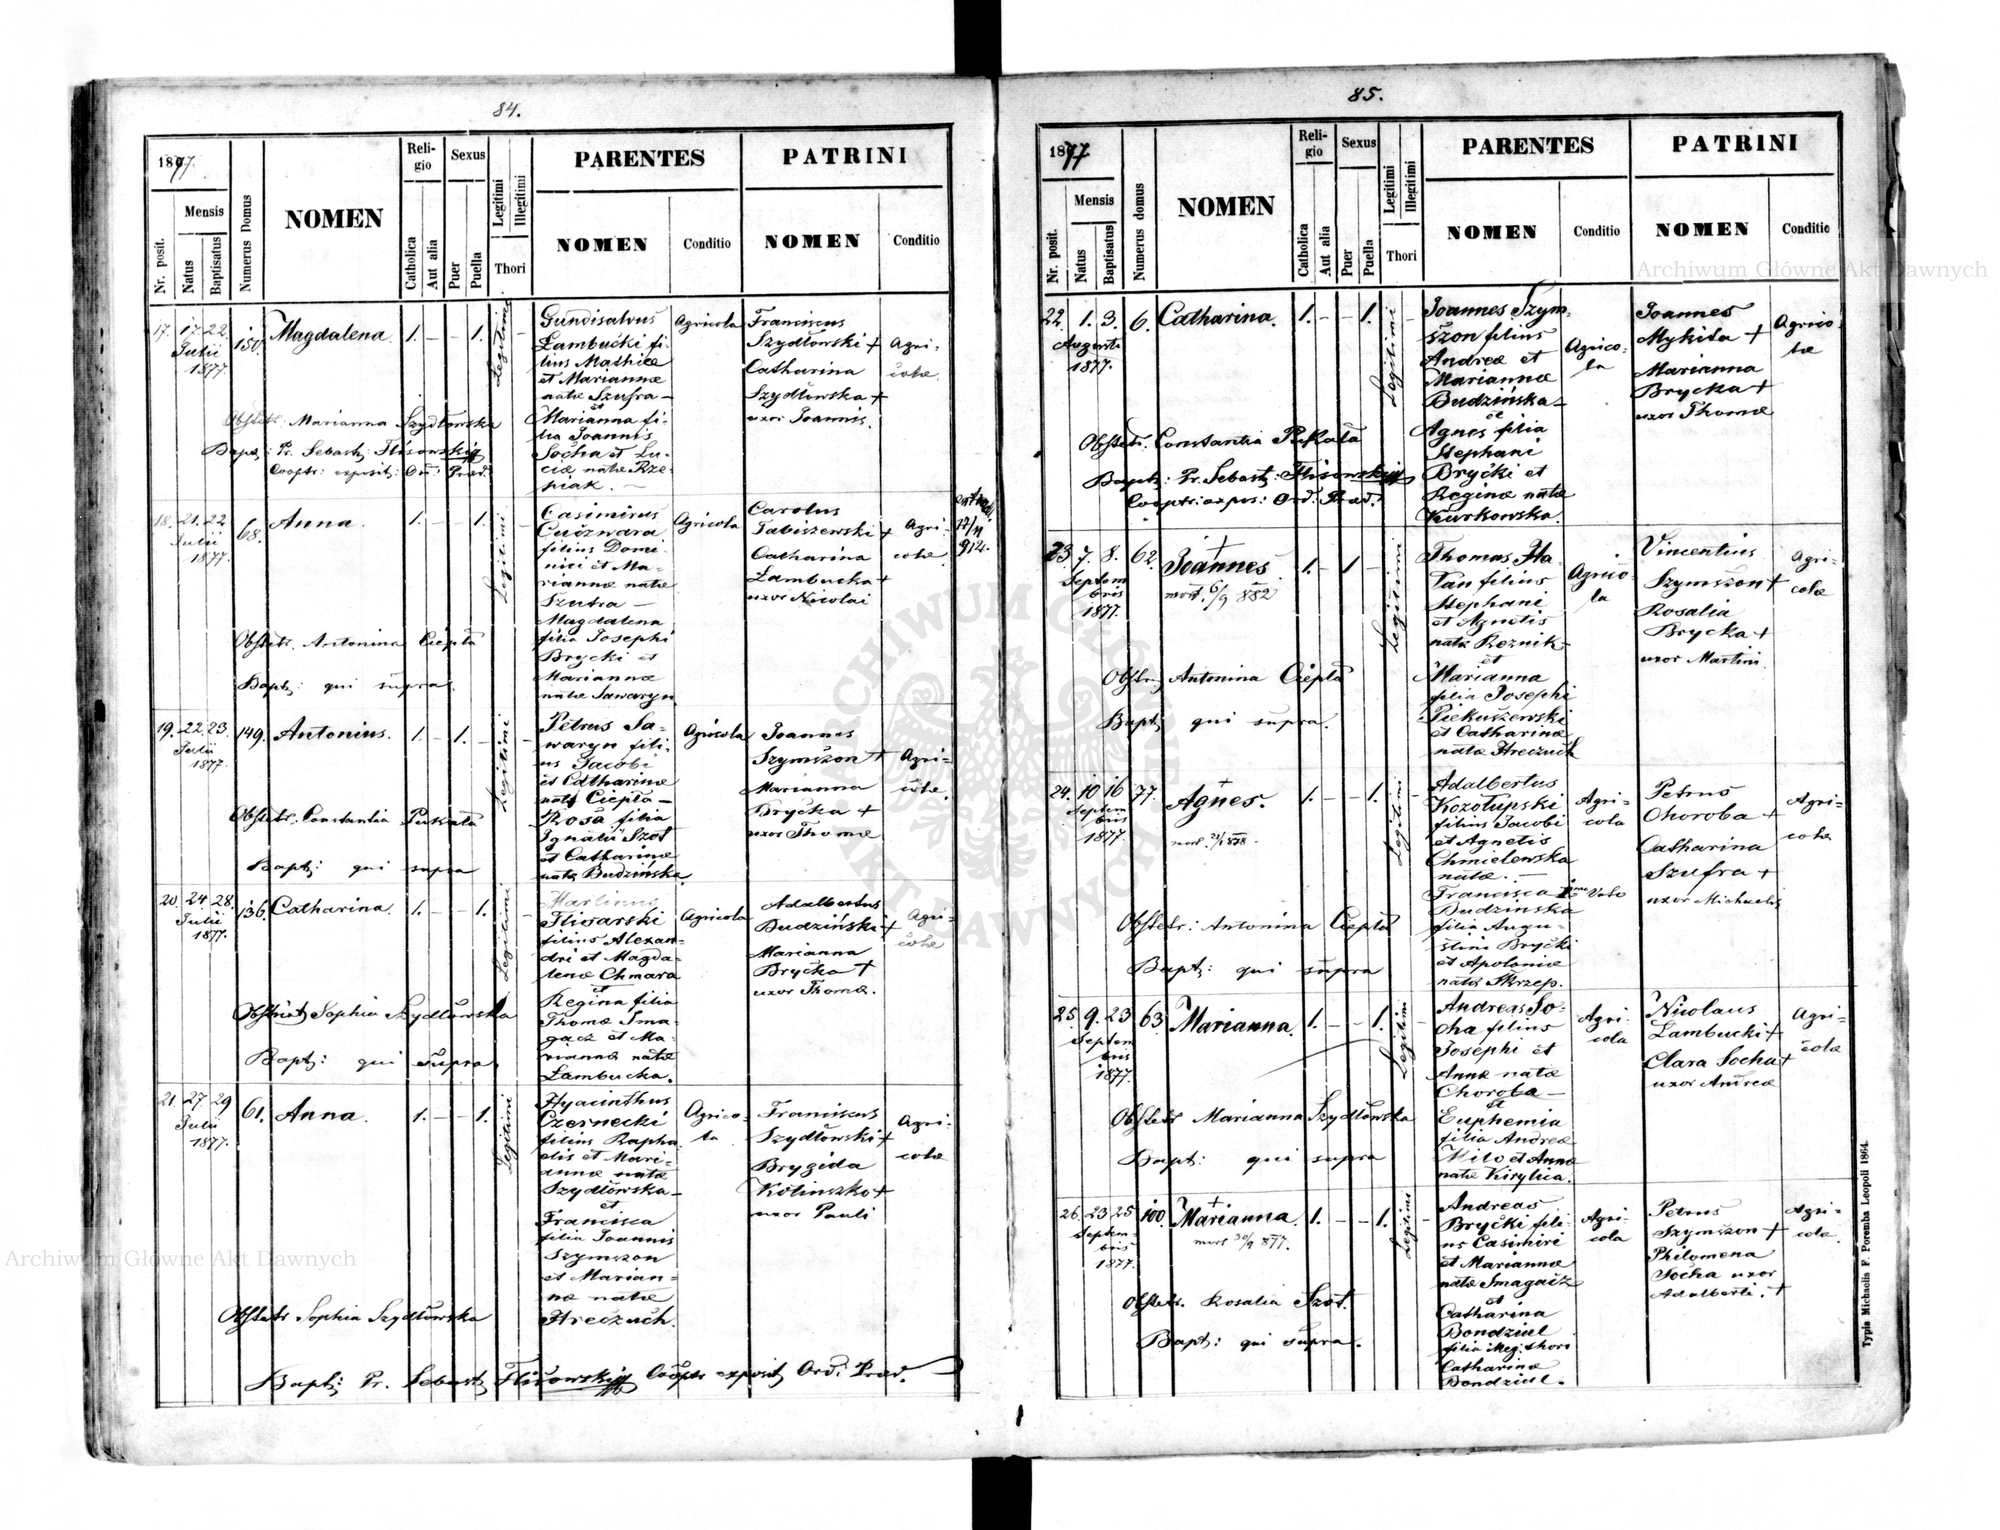 84.
1877.
Nr. posit.
Mensis
Natus
Baptisatus
Numerus Domus
NOMEN
Religio
Catholica
Aut alia
Sexus
Puer
Puella
Legitimi
Illegitimi
Thori
PARENTES
NOMEN
Conditio
PATRINI
NOMEN
Conditio
17. 17. 22. Julii 1877. 150. Magdalena 1. - - 1. Legitimi -
Gundisalvus
Łambucki fi-
lius Mathiæ
et Mariannæ
natæ Szufra -
et
Marianna fi-
lia Joannis
Socha et Lu-
ciæ natæ Rze-
piak. -
Agricola
Franciscus
Szydłowski +
Catharina
Szydłowska +
uxor Joannis.
Agri-
colæ.
Obstetr. Marianna Szydłowska
Bapt: Pr. Sebast: Flisowski
Cooptr: exposit: Ord: Præd.
18. 21. 22 Julii 1877. 68. Anna. 1. - - 1. Legitimi -
Casimirus
Guźwara
filius Domi-
nici et Ma-
riannæ natæ
Szufra -
Magdalena
filia Josephi
Brycki et
Mariannæ
natæ Sawaryn
Agricola
Carolus
Tabiszewski +
Catharina
Łambucka +
uxor Nicolai
Agri-
colæ.
912.
Obstetr. Antonina Ciepła
Bapt: qui supra.
19. 22. 23. Julii 1877. 149. Antonius. 1. - 1. - Legitimi -
Petrus Sa-
waryn fili-
us Jacobi
et Catharinæ
natæ Ciepła -
Rosa filia
Ignatii Szot
et Catharinæ
natæ Budzińska.
Agricola
Joannes
Szymszon +
Marianna
Brycka +
uxor Thomæ
Agri-
colæ.
Obstetr. Constantia Pukała
Bapt: qui supra
20. 24. 28. Julii 1877. 136. Catharina. 1. - - 1. Legitimi -
Martinus
Flisarski
filius Alexan-
dri et Magda-
lenæ Chmara
et
Regina filia
Thomæ Sma-
gacz et Ma-
riannæ natæ
Łambucka.
Agricola
Adalbertus
Budziński +
Marianna
Brycka +
uxor Thomæ.
Agri-
colæ
Obstetr. Sophia Szydłowska
Bapt: qui supra
21. 27. 29. Julii 1877. 61. Anna. 1. - - 1. Legitimi -
Hyacinthus
Czernecki
filius Rapha-
elis et Mari-
annæ natæ
Szydłowska -
et
Francisca
filia Joannis
Szymszon
et Marian-
næ natæ
Hreczuch.
Agrico-
la
Franciscus
Szydłowski +
Brygida
Kolinszko +
uxor Pauli
Agri-
colæ
Obstetr Sophia Szydłowska
Bapt: Pr. Sebast. Flisowski Cooptr exposit Ord: Præd.
85.
1877
Nr. posit.
Mensis
Natus
Baptisatus
Numerus domus
NOMEN
Religio
Catholica
Aut alia
Sexus
Puer
Puella
Legitimi
Illegitimi
Thori
PARENTES
NOMEN
Conditio
PATRINI
NOMEN
Conditio
22. 1. 3. Augusti 1877. 6. Catharina. 1. - - 1. Legitimi -
Joannes Szym-
szon filius
Andreæ et
Mariannæ
Budzińska -
et
Agnes filia
Stephani
Brycki et
Reginæ natæ
Kurkowska.
Agrico-
la
Joannes
Mykita +
Marianna
Brycka +
uxor Thomæ
Agrico-
læ
Obstetr. Constantia Pukała
Bapt: Pr. Sebast: Flisowski
Cooptr: expos: Ord. Præd.
23. 7. 8. Septembris 1877. 62. Joannes 1. - 1 - Legitimi
mort. 6/9 882
Thomas Ha-
łan filius
Stephani
et Agnetis
natæ Reznik -
et
Marianna
filia Josephi
Piekuszewski
et Catharinæ
natæ Hreczuch
Agrico-
la
Vincentius
Szymszon +
Rosalia
Brycka +
uxor Martini.
Agri-
colæ
Obstetr. Antonina Ciepła
Bapt: qui supra.
24. 10 16 Septembris 1877. 77. Agnes. 1. - - 1. Legitimi -
mort. 21/1 878.
Adalbertus
Kozołupski
filius Jacobi
et Agnetis
Chmielewska
natæ. -
Francisca 1mo Voto
Budzińska
filia Augu-
stini Brycki
et Apoloniæ
natæ Skrzep.
Agri-
cola
Petrus
Choroba +
Catharina
Szufra +
uxor Michaelis
Agri-
colæ
Obstetr: Antonina Ciepła
Bapt: qui supra
25. 9. 23 Septembris 1877. 63. Marianna. 1. - - 1. Legitimi
Andreas So-
cha filius
Josephi et
Annæ natæ
Choroba -
et
Euphemia
filia Andreæ
Hilo et Annæ
natæ Kirylica.
Agri-
cola
Nicolaus
Łambucki +
Clara Socha +
uxor Andreæ
Agri-
colæ
Obstetr Marianna Szydłowska
Bapt: qui supra
26. 23. 25 Septembris 1877. 100. Marianna. 1. - - 1. Legitimi -
mort 30/9 877.
Andreas
Brycki fili-
us Casimiri
et Mariannæ
natæ Smagacz
et
Catharina
Bondziul
filia illeg. thori
Catharinæ
Bondziul.
Agri-
cola
Petrus
Szymszon +
Philomena
Socha uxor
Adalberti. +
Agri-
colæ.
Obstetr. Rosalia Szot.
Bapt: qui supra.
Typis Michaelis F. Poremba Leopoli 1864.
Archiwum Główne Akt Dawnych
Archiwum Główne Akt Dawnych
ARCHIWUM GŁÓWNE AKT DAWNYCH